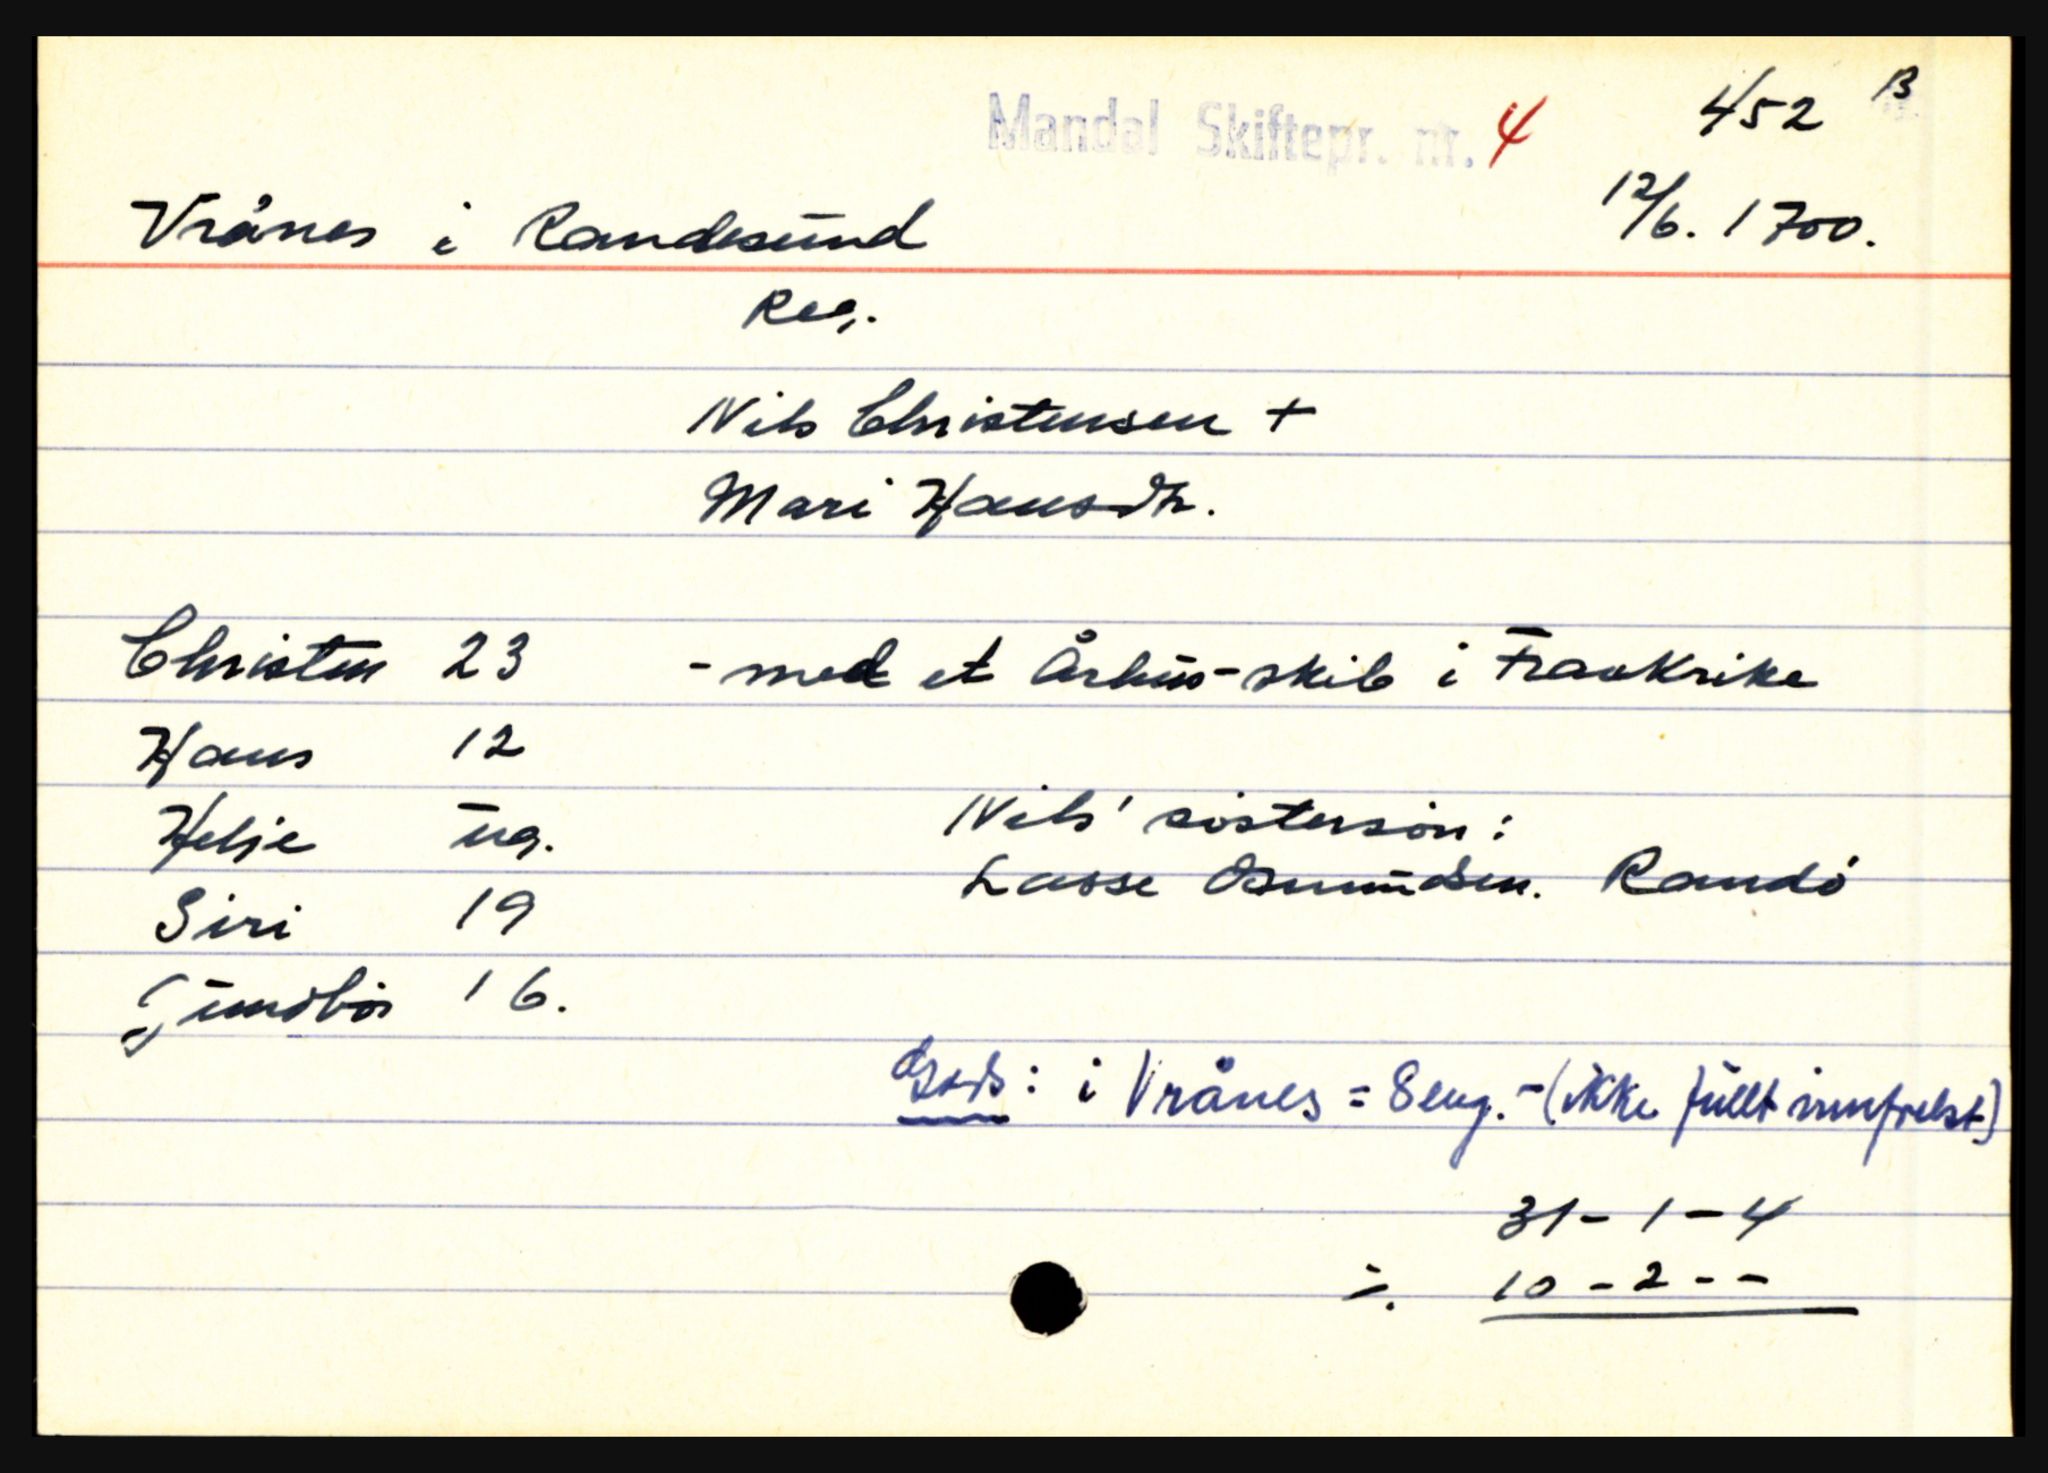 Mandal Skiftepr. nr. 4 452 B
Vrånes i Randesund 12/6. 1700.
Reg.
Nils Christensen +
Mari Hansdtr.
Christen 23 - med et Århus-skib i Frankrike
Hans 12
Helje ug. Nils' sösterson:
Siri 19 Lasse Osmundsen. Randö
Gundbör 16.
Gods: i Vrånes = 8 eng. - (ikke fullt innfrelst)
31 - 1 - 4
÷. 10 - 2 - -